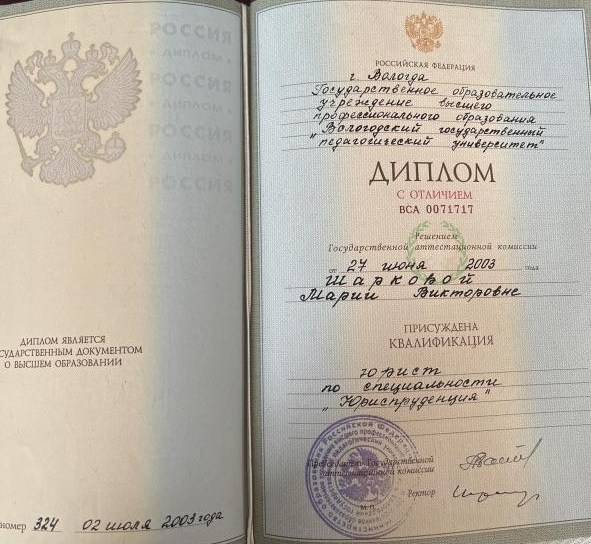 РОССИЯ
ДИПЛОМ
РОССИЯ
ДИПЛОМ
РОССИЯ
ДИПЛОМ
РОССИЯ
ДИПЛОМ ЯВЛЯЕТСЯ
СУДАРСТВЕННЫМ ДОКУМЕНТОМ
О ВЫСШЕМ ОБРАЗОВАНИИ
номер 324 02 июля 2003 года
РОССИЙСКАЯ ФЕДЕРАЦИЯ
г. Вологда
Государственное образовательное
учреждение высшего
профессионального образования
"Вологодский государственный
педагогический университет"
ДИПЛОМ
С ОТЛИЧИЕМ
ВСА 0071717
Решением
Государственной аттестационной комиссии
от 27 июня 2003 года
Шарковой
Марии Викторовне
ПРИСУЖДЕНА
КВАЛИФИКАЦИЯ
юрист
по специальности
"Юриспруденция"
Председатель Государственной
аттестационной комиссии
Ректор
М.П.